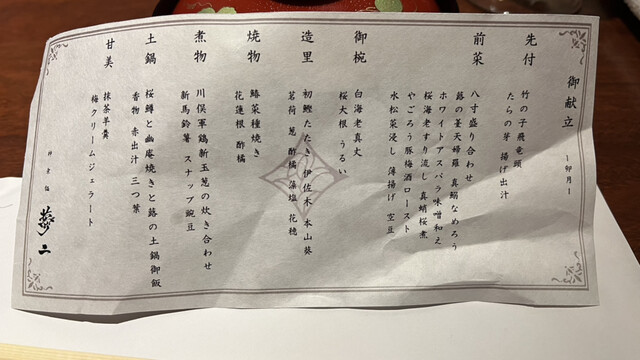 御献立
―卯月―
先付
竹の子飛竜頭
たらの芽 揚げ出汁
前菜
八寸盛り合わせ
蕗の薹天婦羅 真鯛なめろう
ホワイトアスパラ味噌和え
桜海老すり流し 真蛸桜煮
やごろう豚梅酒ロースト
水松菜浸し 薄揚げ 空豆
御椀
白海老真丈
桜大根 うるい
造里
初鰹たたき 伊佐木 本山葵
茗荷 葱 酢橘 藻塩 花穂
焼物
鰆菜種焼き
花蓮根 酢橘
煮物
川俣軍鶏新玉葱の炊き合わせ
新馬鈴薯 スナップ豌豆
土鍋
桜鱒と幽庵焼きと蕗の土鍋御飯
香物 赤出汁 三つ葉
甘美
抹茶羊羹
梅クリームジェラート